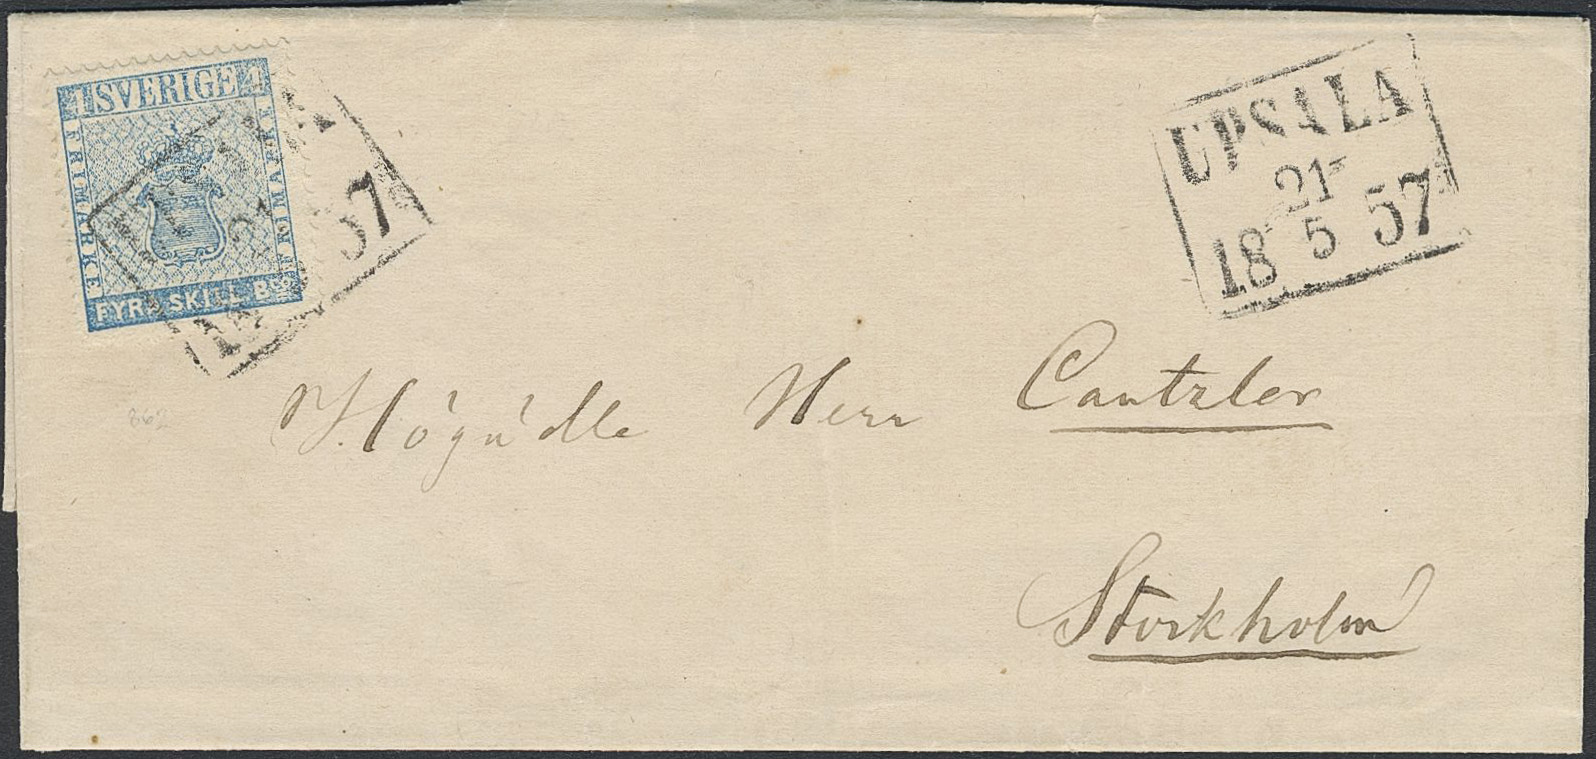 4 SVERIGE 4
FRIMÄRKE
FRIMÄRKE
FYRA SKILL. Bco
UPSALA
21
18 5 57
UPSALA
21
18 5 57
Högädle Herr Cantzler
Stockholm
862